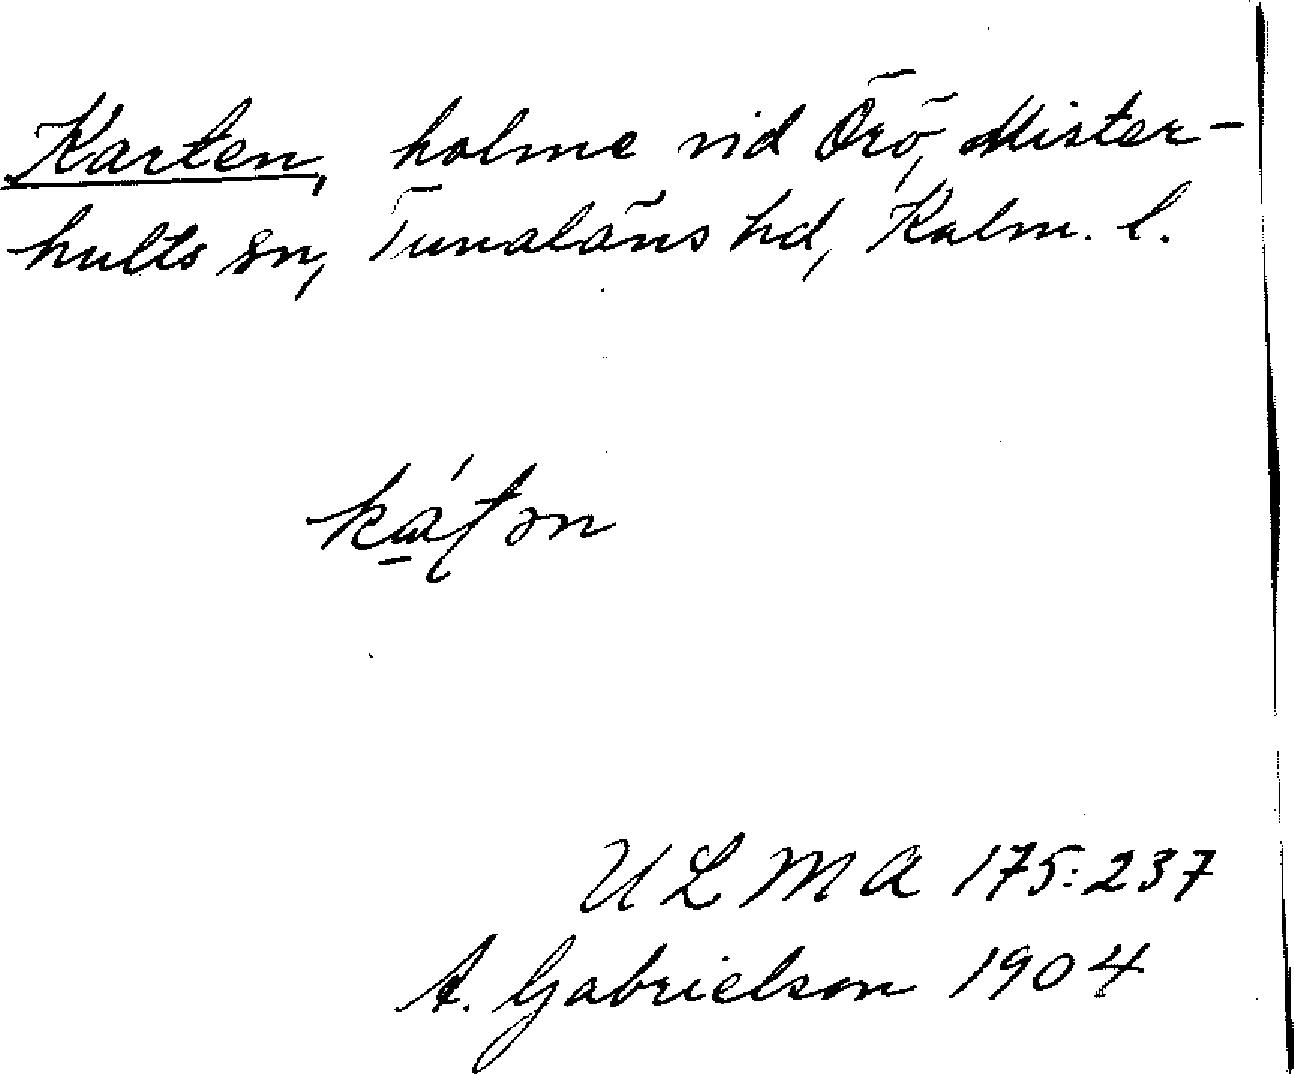 Karten, holme vid Örö, Mister-
hults sn, Tunaläns hd, Kalm. l.
ULMA 175:237
A. Gabrielson 1904